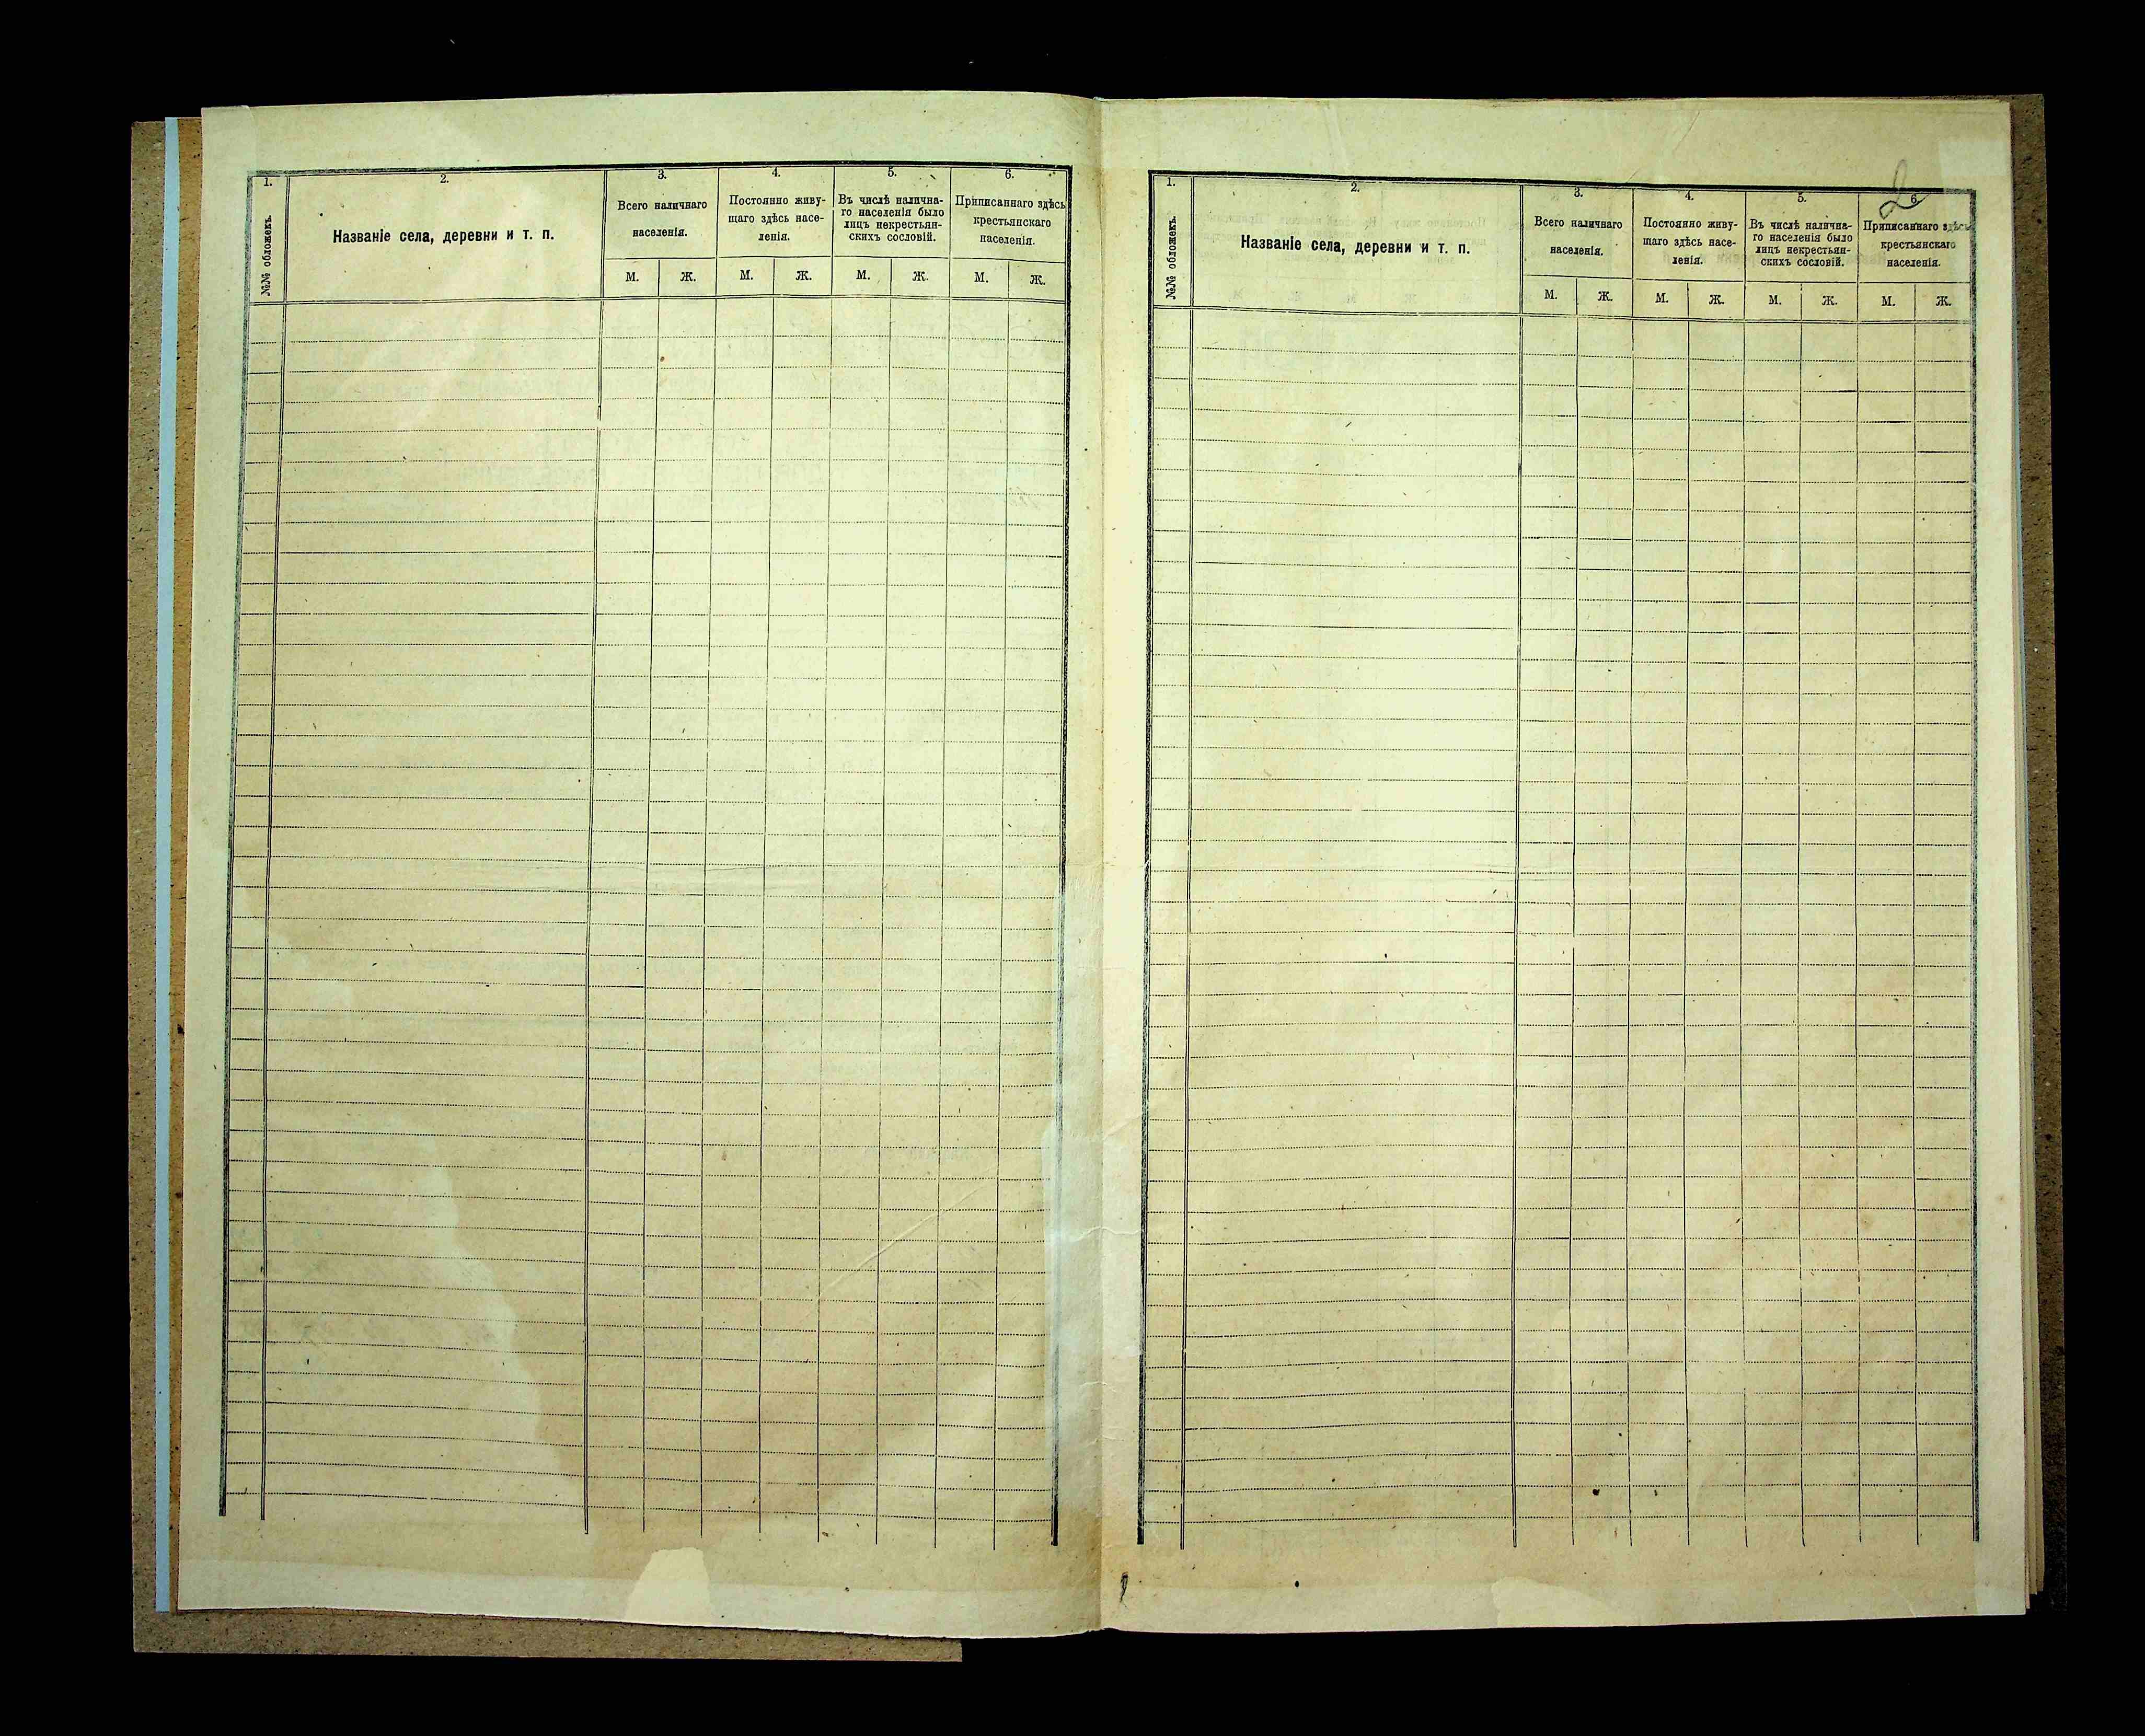 1.
№№ обложекъ.
2.
Названіе села, деревни и т. п.
3.
Всего наличнаго
населенія.
М. Ж.
4.
Постоянно живу-
щаго здѣсь насе-
ленія.
М. Ж.
5.
Въ числѣ налична-
го населенія было
лицъ некрестьян-
скихъ сословій.
М. Ж.
6.
Приписаннаго здѣсь
крестьянскаго
населенія.
М. Ж.
2
1.
№№ обложекъ.
2.
Названіе села, деревни и т. п.
3.
Всего наличнаго
населенія.
М. Ж.
4.
Постоянно живу-
щаго здѣсь насе-
ленія.
М. Ж.
5.
Въ числѣ налична-
го населенія было
лицъ некрестьян-
скихъ сословій.
М. Ж.
6
Приписаннаго здѣсь
крестьянскаго
населенія.
М. Ж.